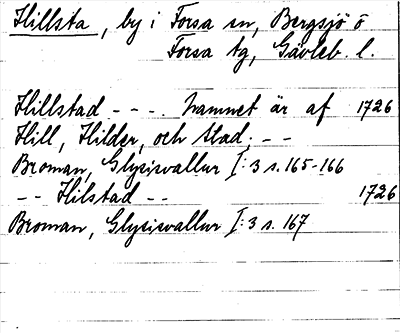 Hillsta, by i Forsa sn, Bergsjö o
Forsa tg, Gävleb. l.
Hillstad - - - . namnet är af 1726
Hill, Hilder, och stad. - -
Broman, Glysisvallur I: 3 s. 165-166
- - Hilstad - - 1726
Broman, Glysisvallur I: 3 s. 167